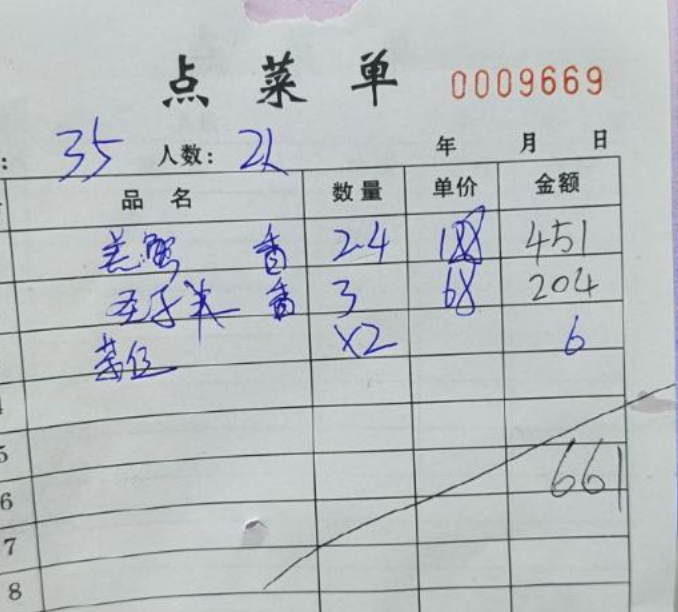 点菜单 0009669
: 35 人数: 2人 年 月 日
品名 数量 单价 金额
羔蟹 香 2.4 188 451
圣子半 香 3 68 204
茶位 ×2 6
4
5
661
6
7
8